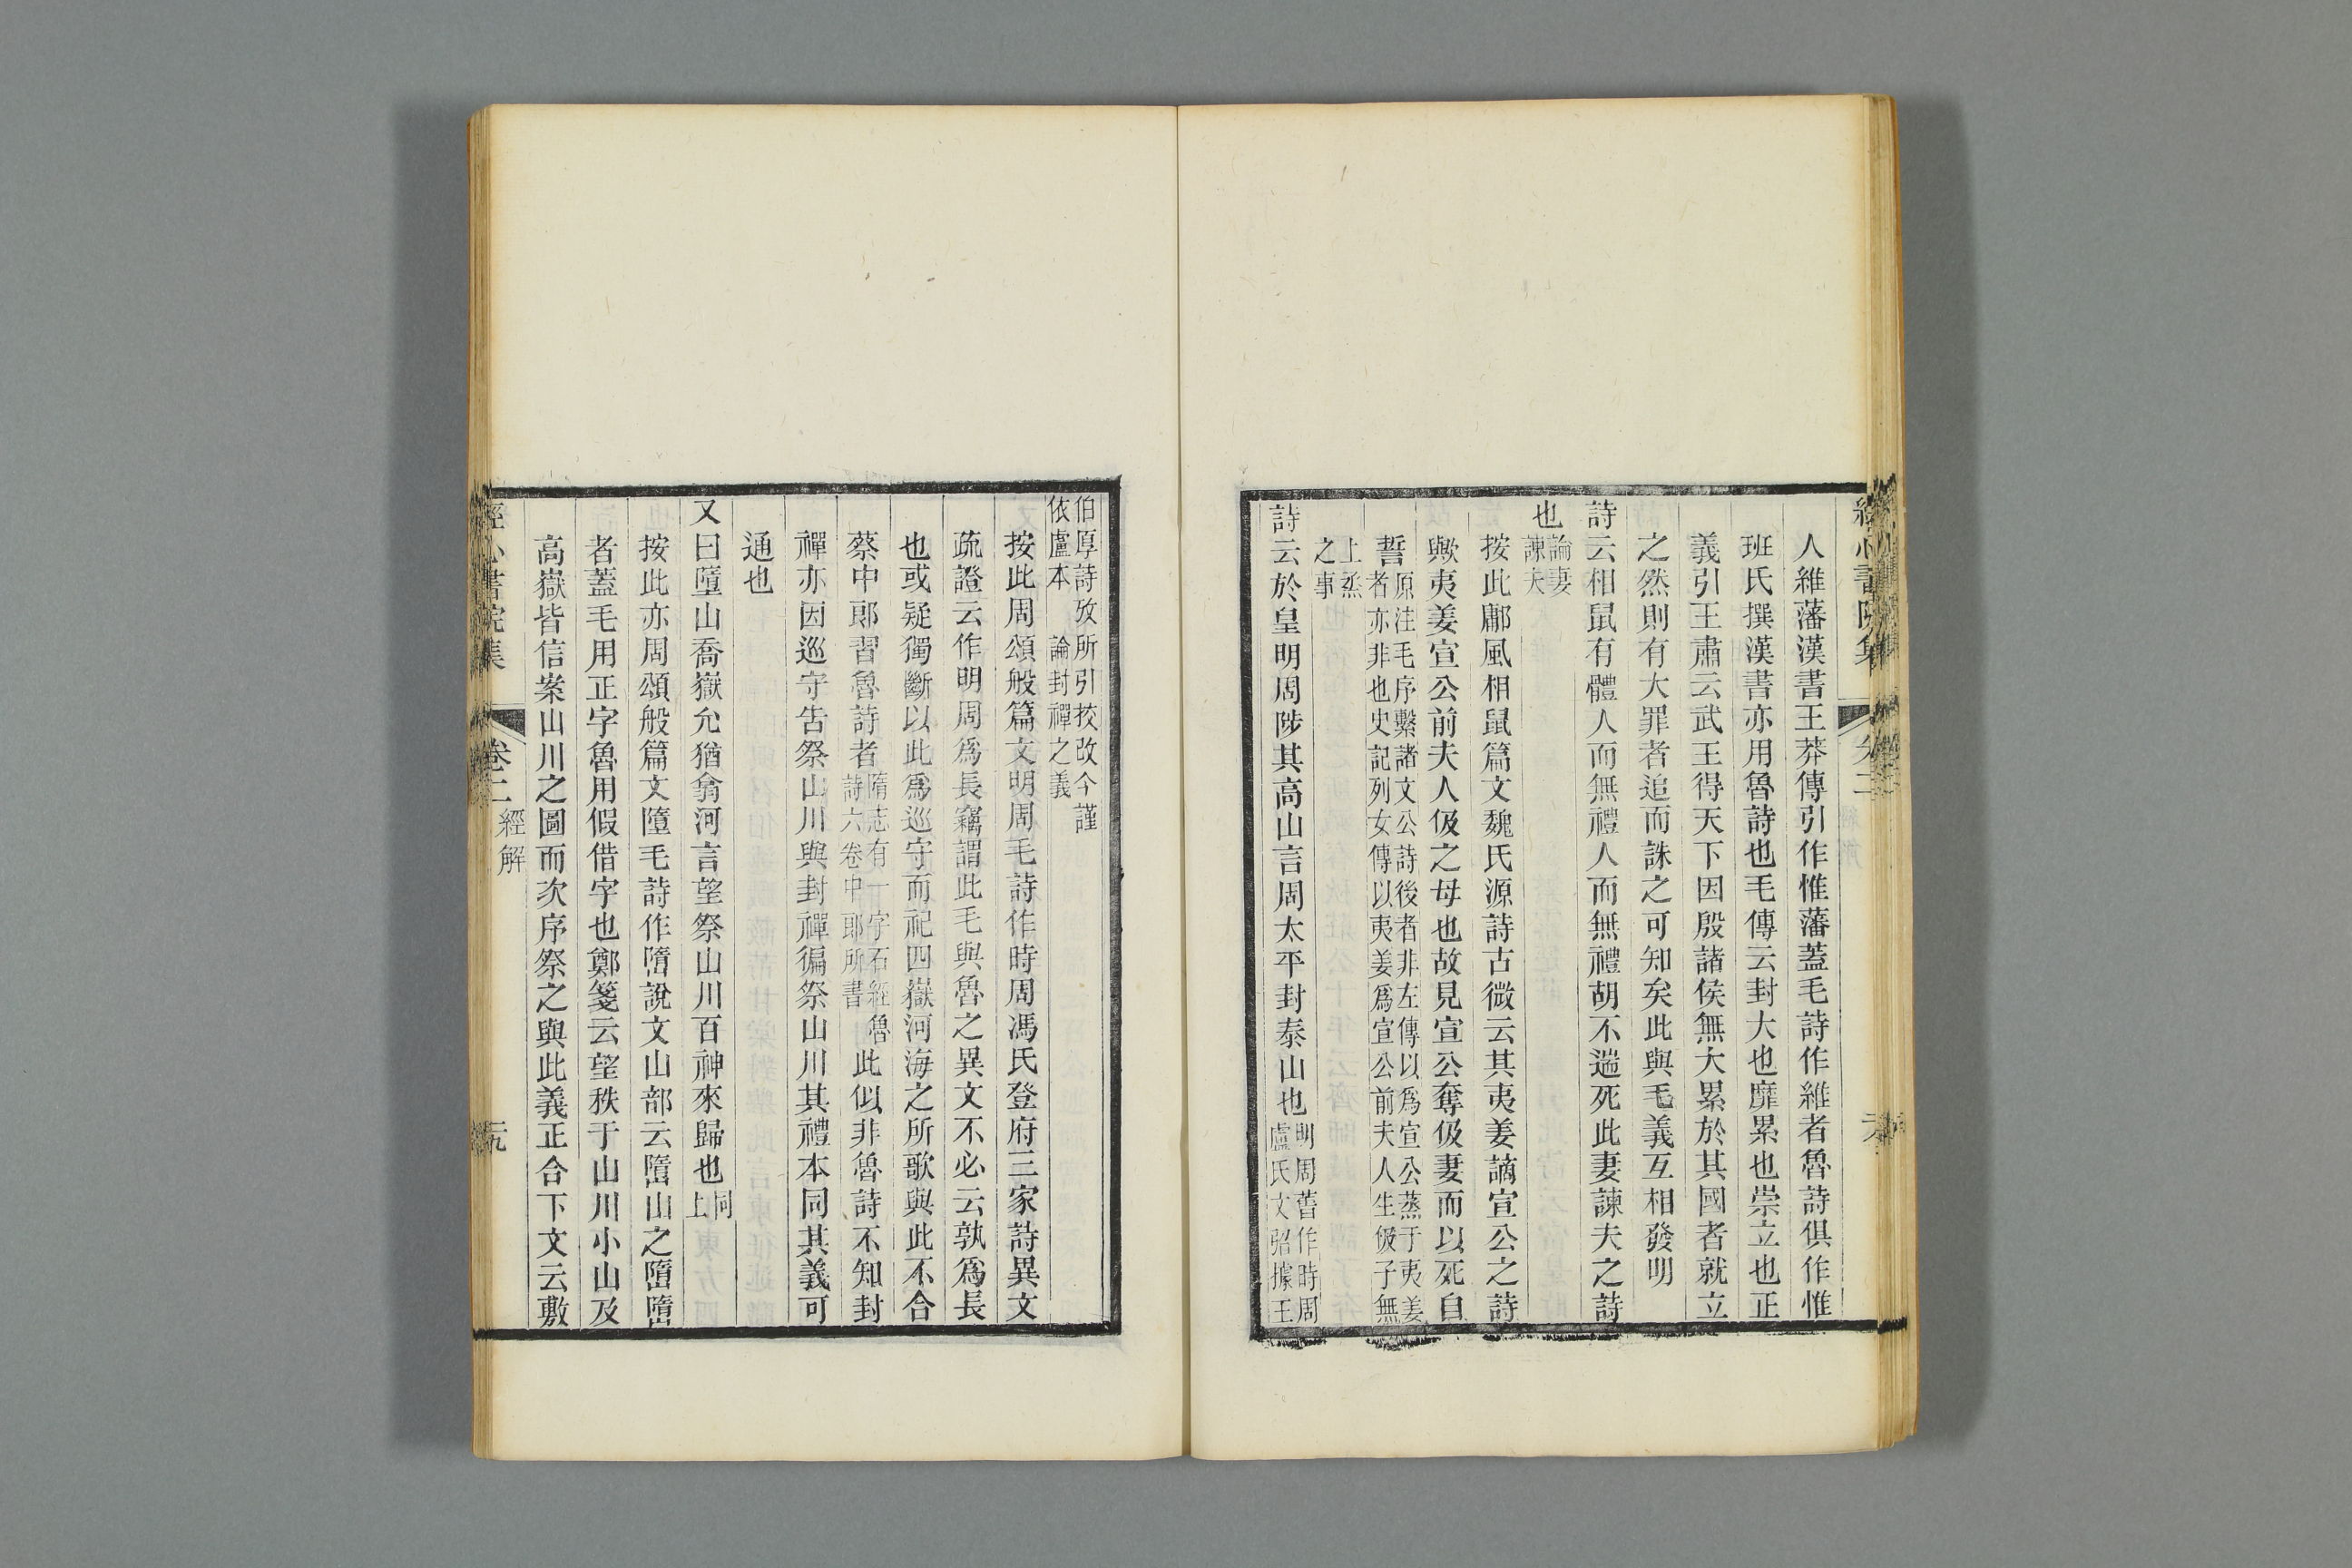 經心書院集 卷二
人維藩漢書王莽傳引作惟藩蓋毛詩作維者魯詩俱作惟
班氏撰漢書亦用魯詩也毛傳云封大也靡累也崇立也正
義引王肅云武王得天下因殷諸侯無大累於其國者就立
之然則有大罪者追而誅之可知矣此與毛義互相發明
詩云相鼠有體人而無禮人而無禮胡不遄死此妻諫夫之詩
也論妻諫夫
按此鄘風相鼠篇文魏氏源詩古微云其夷姜謫宣公之詩
歟夷姜宣公前夫人伋之母也故見宣公奪伋妻而以死自
誓原注毛序繫諸文公詩後者非左傳以爲宣公蒸于夷姜者亦非也史記列女傳以夷姜爲宣公前夫人生伋子無
上烝之事
詩云於皇明周陟其高山言周太平封泰山也明周舊作時周盧氏文弨據王
伯厚詩攷所引挍改今謹依盧本 論封禪之義
按此周頌般篇文明周毛詩作時周馮氏登府三家詩異文
疏證云作明周爲長竊謂此毛與魯之異文不必云孰爲長
也或疑獨斷以此爲巡守而祀四嶽河海之所歌與此不合
蔡中郎習魯詩者隋志有一字石經魯詩六卷中郎所書此似非魯詩不知封
禪亦因巡守告祭山川與封禪徧祭山川其禮本同其義可
通也
又曰墮山喬嶽允猶翕河言望祭山川百神來歸也同上
按此亦周頌般篇文墮毛詩作嶞說文山部云嶞山之嶞嶞
者蓋毛用正字魯用假借字也鄭箋云望秩于山川小山及
高嶽皆信案山川之圖而次序祭之與此義正合下文云敷
經心書院集 卷二 經解